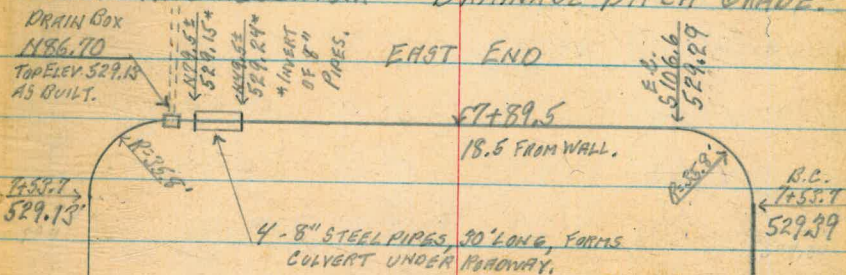 DRAINAGE DITCH GRADE.
DRAIN BOX
N86.70
TOP ELEV. 529.13
AS BUILT.
529.15*
529.24*
*INVERT
OF 8"
PIPES.
EAST END
E.C.
S106.6
529.29
7+89.5
18.5 FROM WALL.
R=35.8'
R=35.8'
7+53.7
529.13'
B.C.
7+53.7
529.39
4 - 8" STEEL PIPES, 30' LONG, FORMS
CULVERT UNDER ROADWAY.